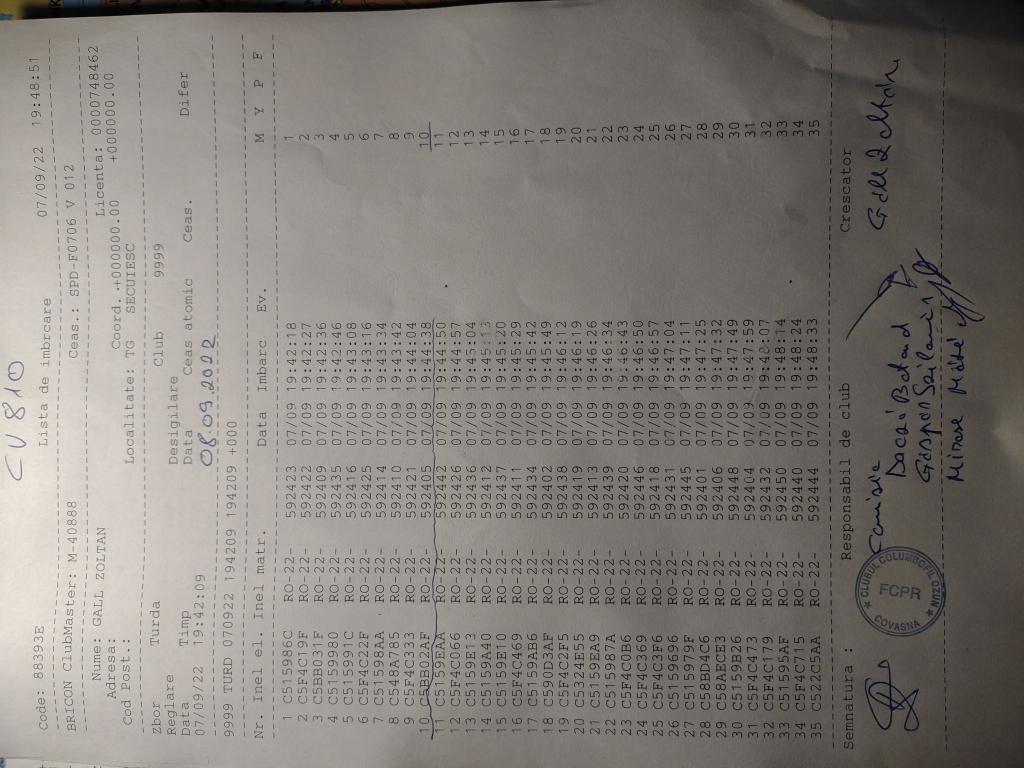 CV 810
Code: 88393E Lista de imbrcare 07/09/22 19:48:51
BRICON ClubMaster: M-40888 Ceas.: SPD-F0706 V 012
Nume: GALL ZOLTAN Licenta: 0000748462
Adresa: Coord. .+000000.00 +0000000.00
Cod Post.: Localitate: TG SECUIESC
Zbor Turda Club 9999
Reglare Desigilare
Data Timp Data Ceas atomic Ceas. Difer
07/09/22 19:42:09 08.09.2022
9999 TURD 070922 194209 194209 +000
Nr. Inel el. Inel matr. Data Imbarc Ev. M Y P F
1 C515986C RO-22- 592423 07/09 19:42:18 1
2 C5F4C19F RO-22- 592422 07/09 19:42:27 2
3 C5BB031F RO-22- 592409 07/09 19:42:36 3
4 C5159980 RO-22- 592435 07/09 19:42:46 4
5 C515991C RO-22- 592416 07/09 19:43:08 5
6 C5F4C22F RO-22- 592425 07/09 19:43:16 6
7 C51598AA RO-22- 592414 07/09 19:43:34 7
8 C548A785 RO-22- 592410 07/09 19:43:42 8
9 C5F4C333 RO-22- 592421 07/09 19:44:04 9
10 C5BB02AF RO-22- 592405 07/09 19:44:38 10
11 C5159EAA RO-22- 592442 07/09 19:44:50 11
12 C5F4C066 RO-22- 592426 07/09 19:44:57 12
13 C5159B13 RO-22- 592436 07/09 19:45:04 13
14 C5159A40 RO-22- 592412 07/09 19:45:13 14
15 C5159E10 RO-22- 592437 07/09 19:45:20 15
16 C5F4C469 RO-22- 592411 07/09 19:45:29 16
17 C5159AB6 RO-22- 592434 07/09 19:45:42 17
18 C590D3AF RO-22- 592402 07/09 19:45:49 18
19 C5F4C2F5 RO-22- 592438 07/09 19:46:12 19
20 C5324E55 RO-22- 592419 07/09 19:46:19 20
21 C5159EA9 RO-22- 592413 07/09 19:46:26 21
22 C515987A RO-22- 592439 07/09 19:46:34 22
23 C5F4C0B6 RO-22- 592420 07/09 19:46:43 23
24 C5F4C369 RO-22- 592446 07/09 19:46:50 24
25 C5F4C3F6 RO-22- 592418 07/09 19:46:57 25
26 C5159696 RO-22- 592431 07/09 19:47:04 26
27 C515979F RO-22- 592445 07/09 19:47:11 27
28 C58BD4C6 RO-22- 592401 07/09 19:47:25 28
29 C58AECE3 RO-22- 592406 07/09 19:47:32 29
30 C5159B26 RO-22- 592448 07/09 19:47:49 30
31 C5F4C473 RO-22- 592404 07/09 19:47:59 31
32 C5F4C179 RO-22- 592432 07/09 19:48:07 32
33 C51595AF RO-22- 592450 07/09 19:48:14 33
34 C5F4C715 RO-22- 592440 07/09 19:48:24 34
35 C522C5AA RO-22- 592444 07/09 19:48:33 35
Semnatura : Responsabil de club Crescator
CLUBUL COLUMBOFIL
FCPR
COVASNA